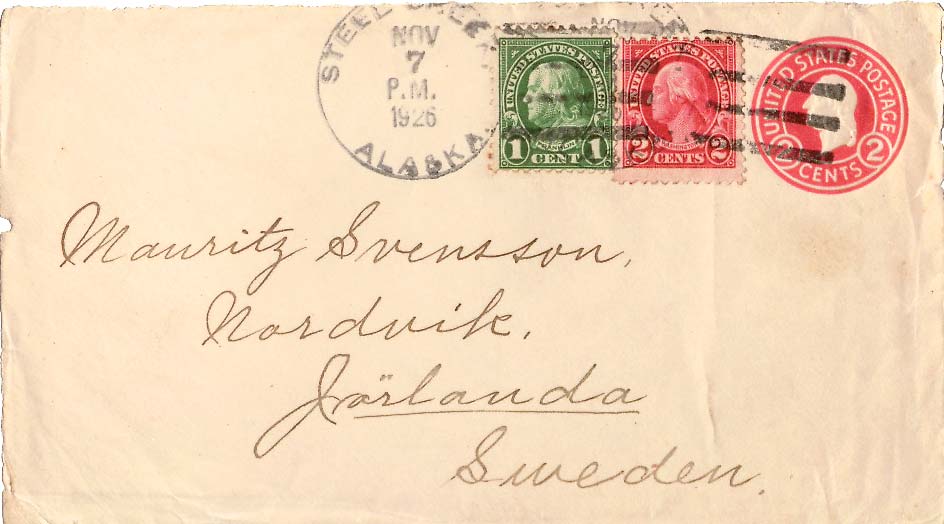 STEEL CREEK
NOV
7
P.M.
1926
ALASKA.
NOV
UNITED STATES POSTAGE
FRANKLIN
1 CENT 1
UNITED STATES POSTAGE
WASHINGTON
2 CENTS 2
UNITED STATES POSTAGE
2 CENTS 2
Mauritz Svensson,
Nordvik,
Jörlanda
Sweden.